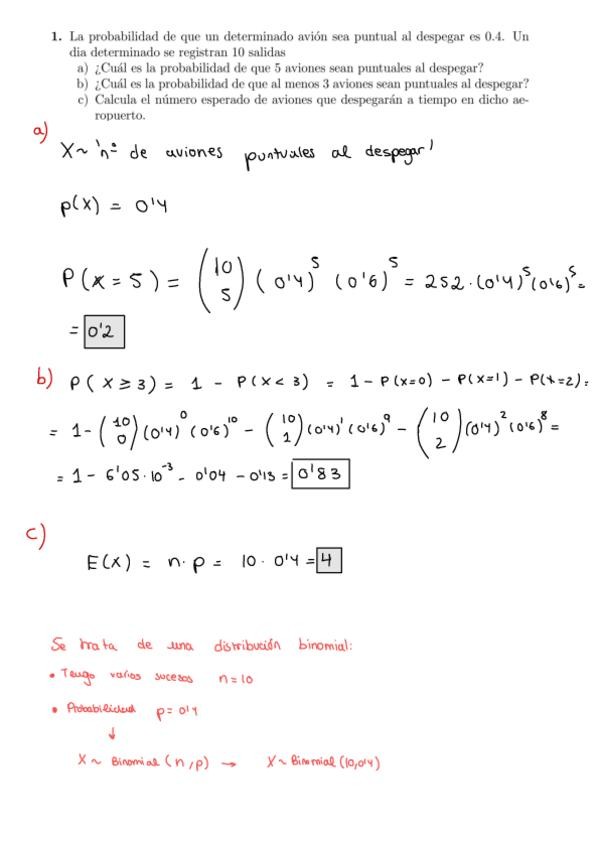 1. La probabilidad de que un determinado avión sea puntual al despegar es 0.4. Un
dia determinado se registran 10 salidas
a) ¿Cuál es la probabilidad de que 5 aviones sean puntuales al despegar?
b) ¿Cuál es la probabilidad de que al menos 3 aviones sean puntuales al despegar?
c) Calcula el número esperado de aviones que despegarán a tiempo en dicho ae-
ropuerto.
a)
X ~ 'nº de aviones puntuales al despegar'
p(X) = 0'4
P(x = 5) = (10 5) (0'4)^5 (0'6)^5 = 252 · (0'4)^5 (0'6)^5 =
= 0'2
b) P(X ≥ 3) = 1 - P(X < 3) = 1 - P(X=0) - P(X=1) - P(X=2) =
= 1 - (10 0) (0'4)^0 (0'6)^10 - (10 1) (0'4)^1 (0'6)^9 - (10 2) (0'4)^2 (0'6)^8 =
= 1 - 6'05 · 10^-3 - 0'04 - 0'13 = 0'83
c)
E(X) = n · p = 10 · 0'4 = 4
Se trata de una distribución binomial:
• Tengo varios sucesos n = 10
• Probabilidad p = 0'4
↓
X ~ Binomial (n, p) → X ~ Binomial (10, 0'4)